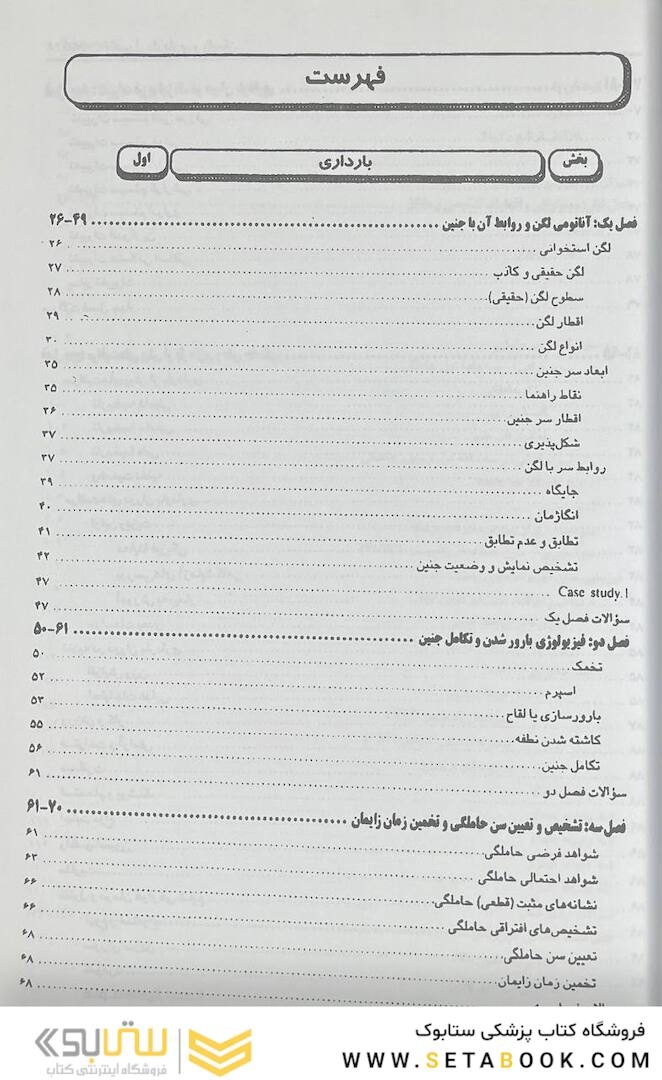 فهرست
بخش
بارداری
اول
فصل یک: آناتومی لگن و روابط آن با جنین ۴۹-۲۶
لگن استخوانی ۲۶
لگن حقیقی و کاذب ۲۷
سطوح لگن (حقیقی) ۲۸
اقطار لگن ۲۹
انواع لگن ۳۰
ابعاد سر جنین ۳۵
نقاط راهنما ۳۵
اقطار سر جنین ۳۶
شکل‌پذیری ۳۷
روابط سر با لگن ۳۷
جایگاه ۳۹
انگاژمان ۴۰
تطابق و عدم تطابق ۴۱
تشخیص نمایش و وضعیت جنین ۴۲
Case study.1 ۴۷
سؤالات فصل یک ۴۷
فصل دو: فیزیولوژی بارور شدن و تکامل جنین ۶۱-۵۰
تخمک ۵۰
اسپرم ۵۲
بارورسازی یا لقاح ۵۳
کاشته شدن نطفه ۵۵
تکامل جنین ۵۶
سؤالات فصل دو ۶۱
فصل سه: تشخیص و تعیین سن حاملگی و تخمین زمان زایمان ۷۰-۶۱
شواهد فرضی حاملگی ۶۱
شواهد احتمالی حاملگی ۶۳
نشانه‌های مثبت (قطعی) حاملگی ۶۶
تشخیص‌های افتراقی حاملگی ۶۶
تعیین سن حاملگی ۶۸
تخمین زمان زایمان ۶۸
۶۸
فروشگاه کتاب پزشکی ستابوک
WWW.SETABOOK.COM
ستابوک
فروشگاه اینترنتی کتاب